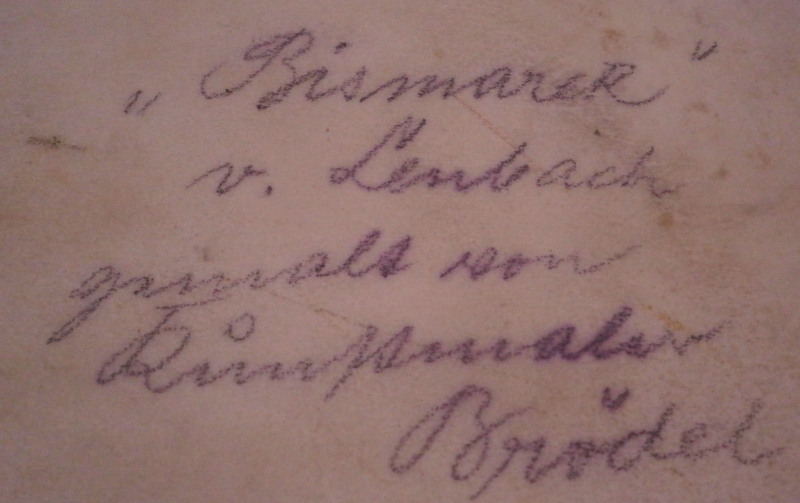 „Bismarck"
v. Lenbach
gemalt von
Kunstmaler
Brödel